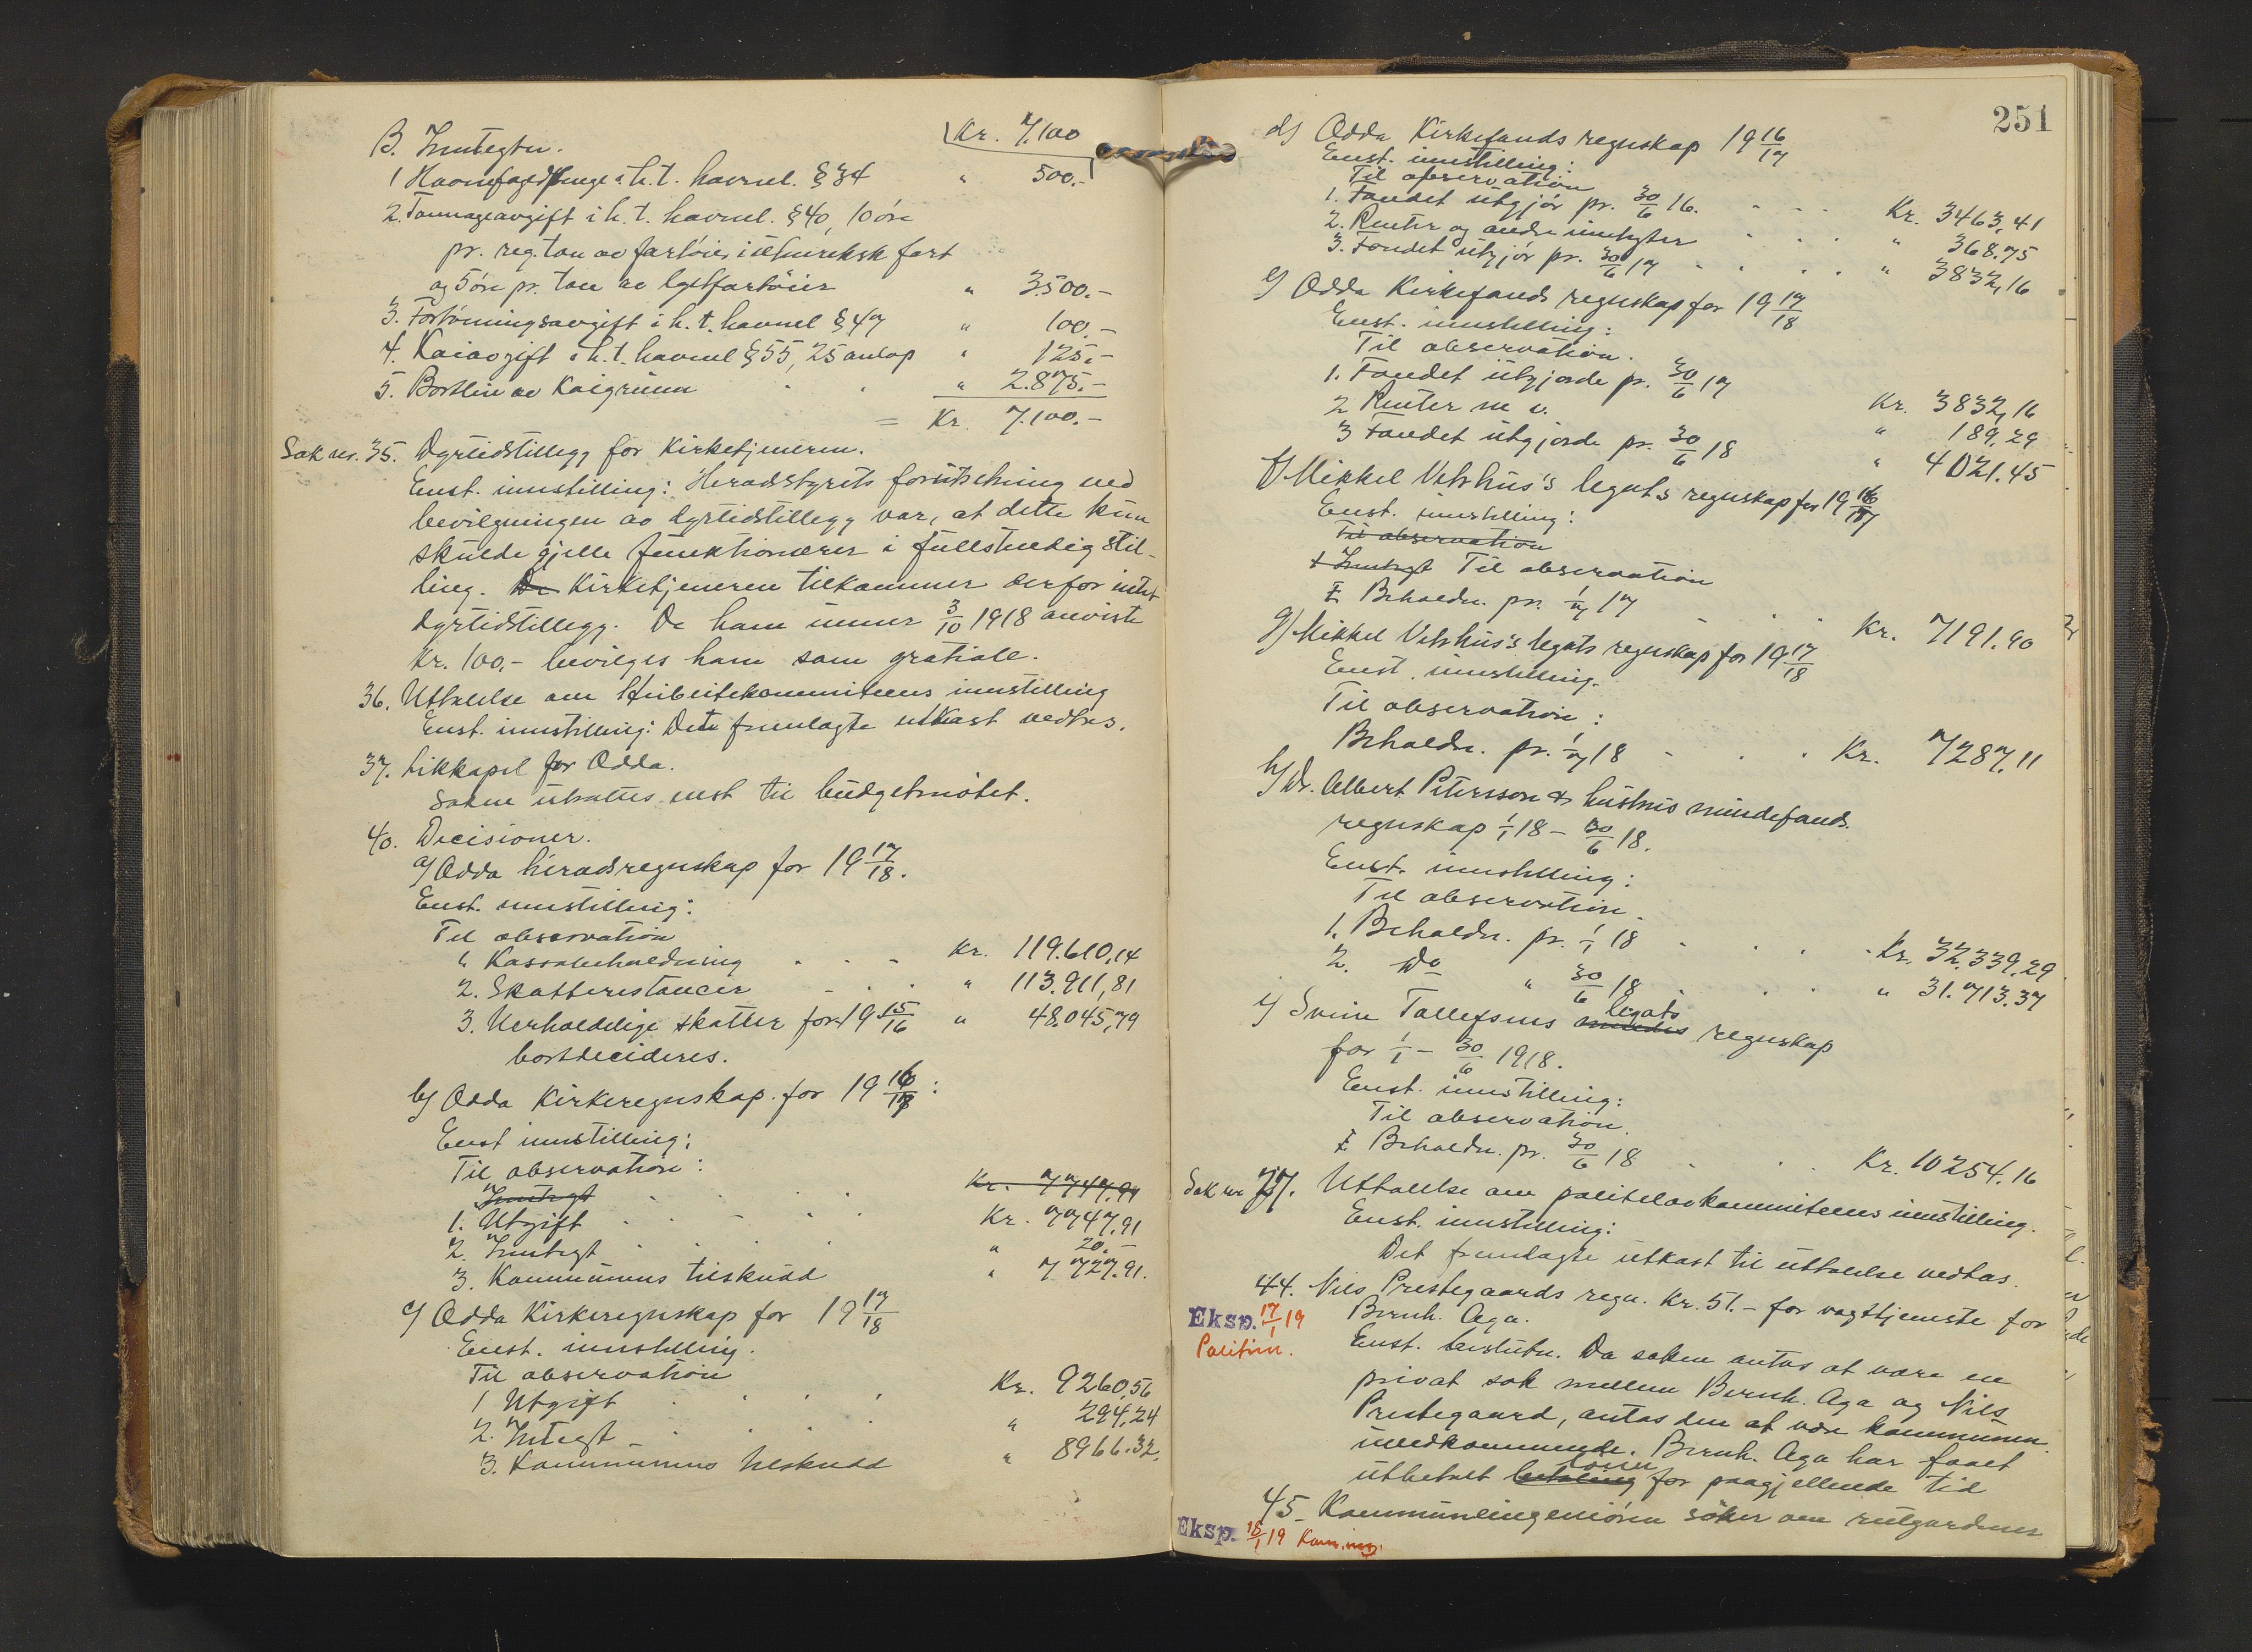 Kr. 7.100
B. Inntegter.
1 Havnefogedpenge i h. t. havnel. § 34 " 500.-
2. Tonnageavgift i h. t. havnel. § 40, 10 øre
pr. reg. ton av fartöier i utenriksk fart
og 5 öre pr. ton av lystfartöier " 3500.-
3. Fortöiningsavgift i h. t. havnel § 47 " 100.-
4. Kaiavgift i h. t. havnel § 55, 25 anlöp " 125.-
5. Bortleie av Kaigrunn " 2.875.-
= Kr. 7.100.-
Sak nr. 35. Dyrtidstillegg for Kirketjeneren.
Enst. innstilling: Heradstyrets forutsetning ved
bevilgningen av dyrtidstillegg var, at dette kun
skulde gjelle funktionærer i fullstendig stil-
ling. De Kirketjeneren tilkommer derfor intet
dyrtidstillegg. De ham under 3/10 1918 anviste
Kr. 100.- bevilges ham som gratiale.
36. Uttalelse om Huileiekommiteens innstilling
Enst. innstilling: Dette fremlagte utkast vedtas.
37. Likkapel for Odda.
Saken utsættes enst til budgetmøtet.
40. Decisioner.
a) Odda heradsregnskap for 19 17/18.
Enst. innstilling:
Til observation
1. Kassabeholdning Kr. 119.610,14
2. Skatterestancer " 113.911,81
3. Uerholdelige skatter for 19 15/16 " 48.045,79
bortdecideres.
b) Odda Kirkeregnskap for 19 16/17:
Enst innstilling:
Til observation:
Inntegt Kr. 7747.91
1. Utgift Kr. 7747,91
2. Inntegt " 20.-
3. Kommunens tilskudd " 7727.91.
c) Odda Kirkeregnskap for 19 17/18
Enst. innstilling.
Til observation
1 Utgift Kr. 9260,56
2. Inntegt " 294,24
3. Kommunens tilskudd " 8966.32.
251
d) Odda Kirkefonds regnskap 19 16/17
Enst. innstilling:
Til observation
1. Fondet utgjör pr. 30/6 16. Kr. 3463,41
2. Renter og andre inntegter " 368.75
3. Fondet utgjör pr. 30/6 17 " 3832,16
e) Odda Kirkefonds regnskap for 19 17/18
Enst. innstilling:
Til observation.
1. Fondet utgjorde pr. 30/6 17 Kr. 3832,16
2 Renter m v. " 189,29
3 Fondet utgjorde pr. 30/6 18 " 4021.45
f) Mikkel Vetrhus's legats regnskap for 19 16/17
Enst. innstilling:
Til observation
1 Inntegt Til observation
1. Beholdn. pr. 1/7 17 Kr. 7191.90
g) Mikkel Vetrhus's legats regnskap for 19 17/18
Enst. innstilling.
Til observation:
Beholdn. pr. 1/7 18 Kr. 7287.11
h) Dr. Albert Petersson & hustrus mindefonds.
regnskap 1/1 18 - 30/6 18.
Enst. innstilling:
Til observation.
1. Beholdn. pr. 1/1 18 Kr. 32.339,29
2. Do " 30/6 18 " 31.713.37
i) Svein Tollefsens legats regnskap
for 1/1 - 30/6 1918.
Enst. innstilling:
Til observation.
1 Beholdn. pr. 30/6 18 Kr. 10254.16
Sak nr 77. Uttalelse om politilovkommiteens innstilling.
Enst. innstilling:
Det fremlagte utkast til uttalelse vedtas.
44. Nils Prestegaards regn. Kr. 51.- for vagttjeneste for
Eksp. 17/1 19 Bernh. Aga.
Politim. Enst. beslutn. Da saken antas at være en
privat sak mellem Bernh. Aga og Nils
Prestegaard, antas den at være kommunen
uvedkommende. Bernh. Aga har faaet
utbetalt betaling lönnen for paagjellende tid
45. Kommuneingeniören söker om rutgardiner
Eksp. 18/1 19 Kom.ing.